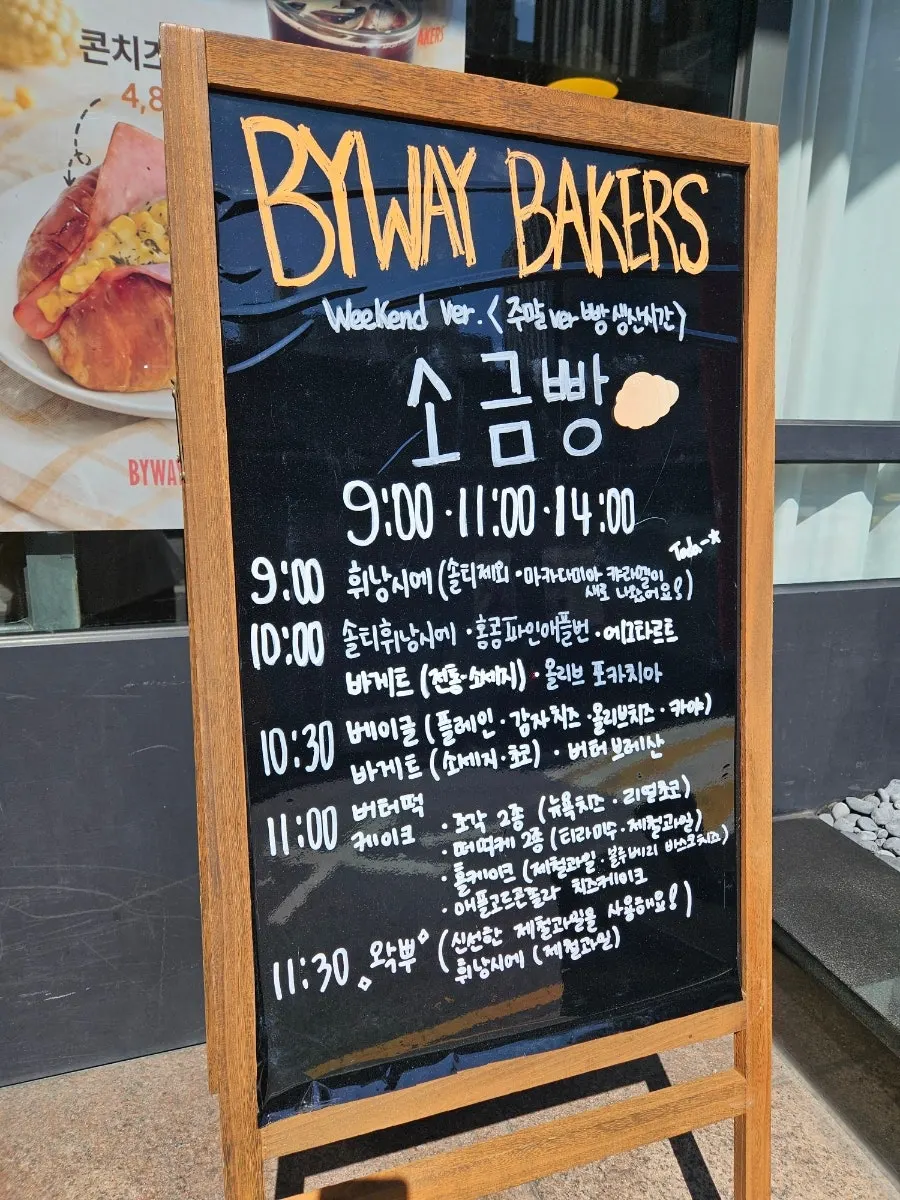 콘치즈
4,8
BAKERS
BYWAY
BYWAY BAKERS
Weekend Ver. <주말 ver 빵 생산시간>
소금빵
9:00 · 11:00 · 14:00
Tada-☆
9:00 휘낭시에 (솔티제외 · 마카다미아 캬라멜이
새로 나왔어요!)
10:00 솔티휘낭시에 · 홍콩파인애플번 · 에그타르트
바게트 (전통·소세지) · 올리브 포카치아
10:30 베이글 (플레인 · 감자치즈 · 올리브치즈 · 카야)
바게트 (소세지·초코) · 버터브레산
11:00 버터떡
케이크 · 조각 2종 (뉴욕치즈 · 리얼초코)
· 떠먹케 2종 (티라미수 · 제철과일)
· 홀케이크 (제철과일 · 블루베리 바스크치즈)
· 애플고르곤졸라 치즈케이크
11:30 왁뿌 (신선한 제철과일을 사용해요!)
휘낭시에 (제철과일)